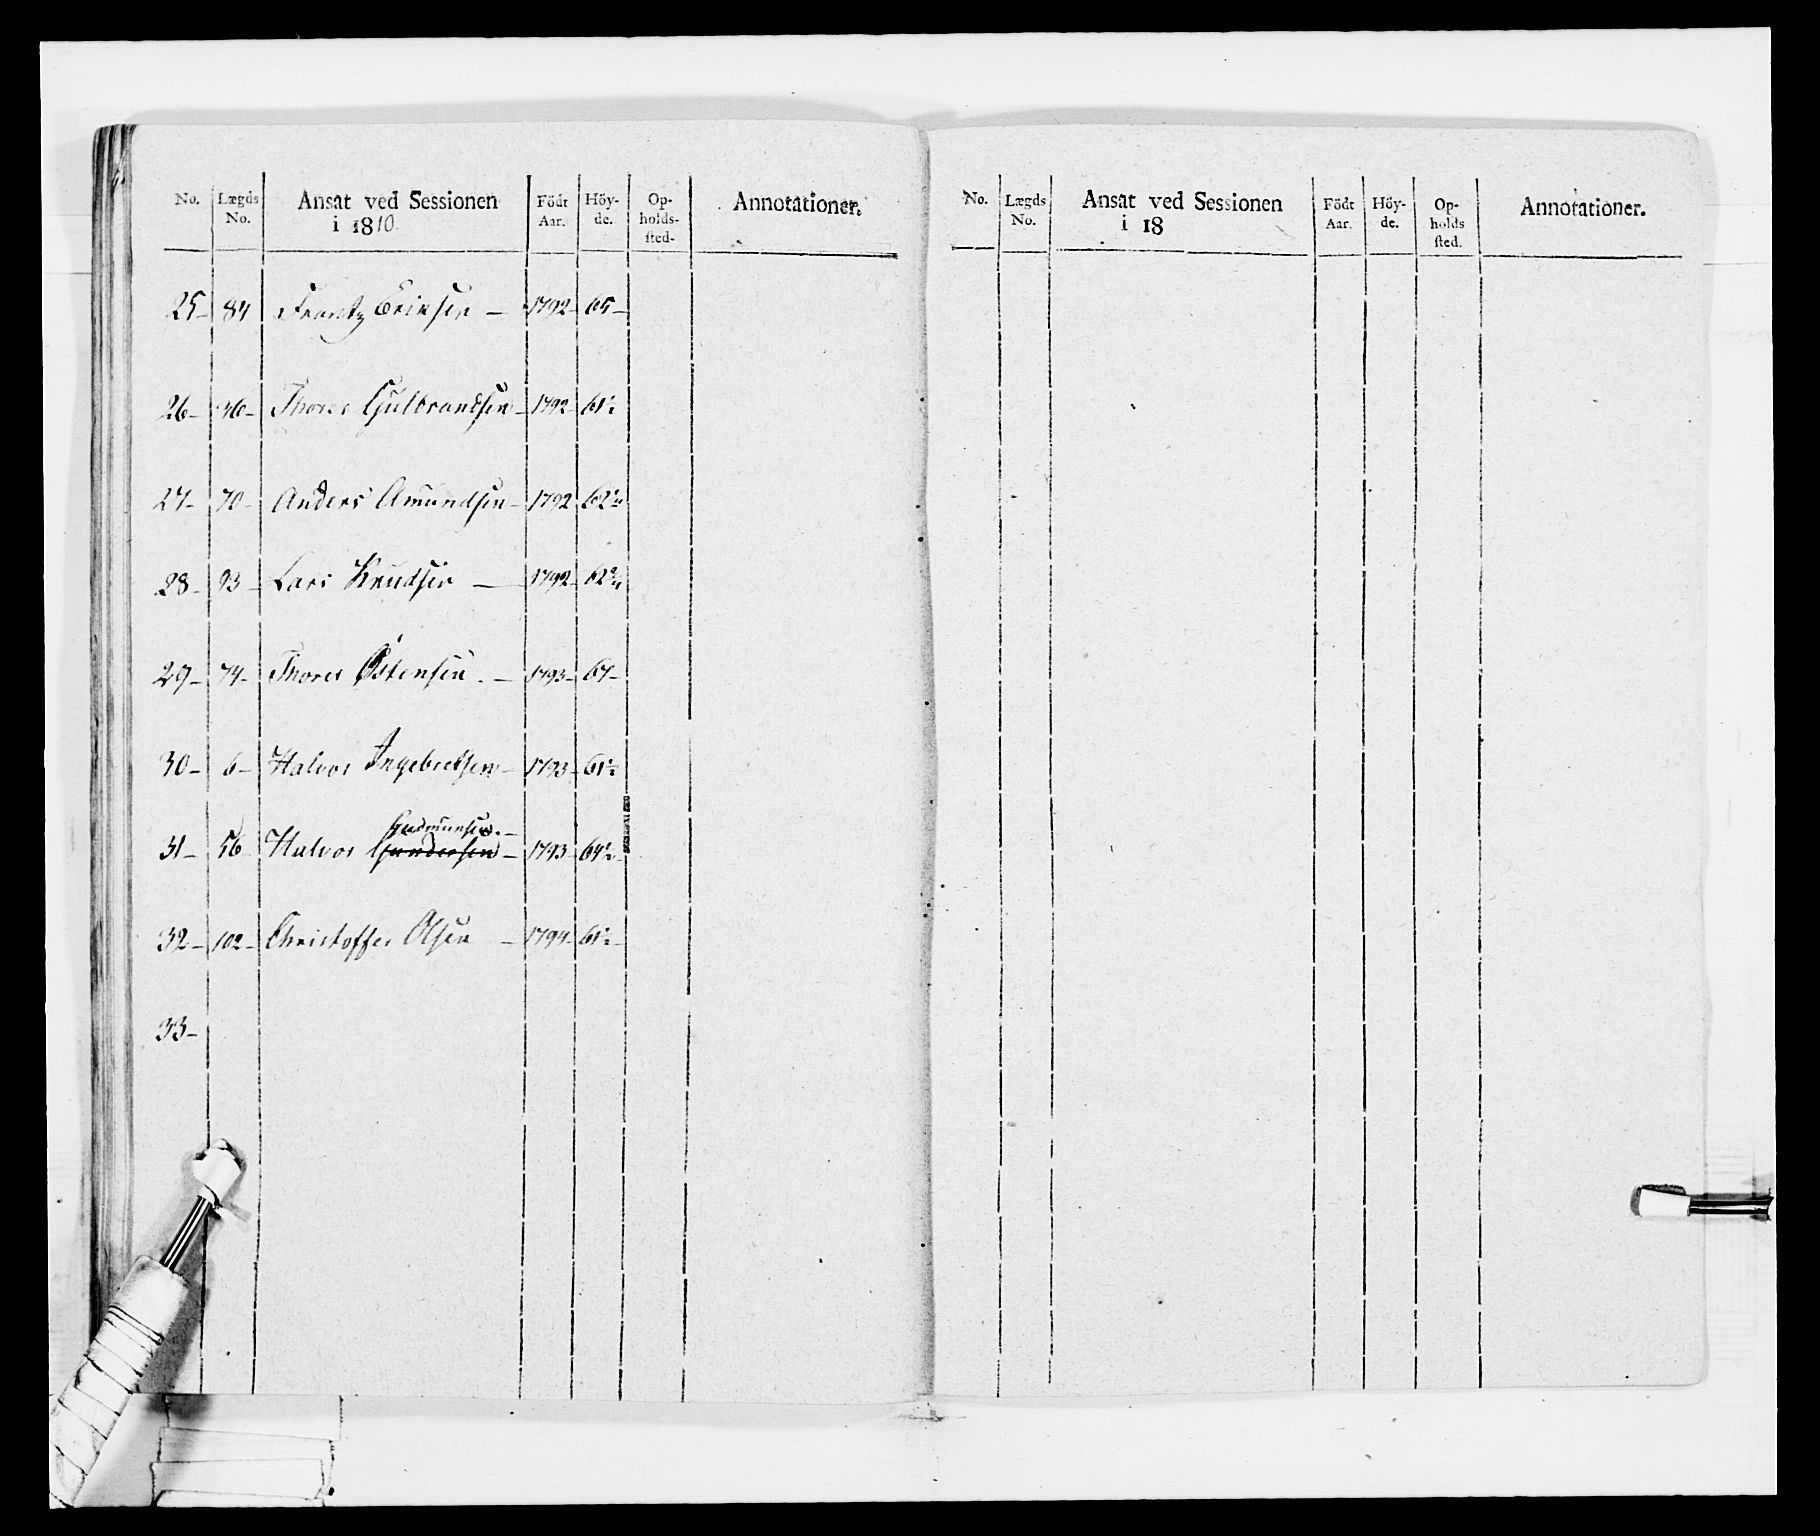 No. Lægds No. Ansat ved Sessionen i 1810. Födt Aar. Höy-de. Op-holds-sted- Annotationer.
25- 84 Frantz Eriksen - 1792- 65-
26- 36- Thores Gulbrandsen- 1792- 61½
27- 70- Anders Amundsen- 1792 62¼
28- 93- Lars Knudsen - 1792- 62¾
29- 74- Thores Østensen. - 1793- 67-
30- 6- Halvor Ingebretsen- 1793- 61½
Gudmunsen.-
31- 56 Halvor Gundersen- 1793- 64½-
32- 102- Christoffer Olsen - 1794- 61½-
33-
No. Lægds No. Ansat ved Sessionen i 18 Födt Aar. Höy-de. Op-holds sted. Annotationer.